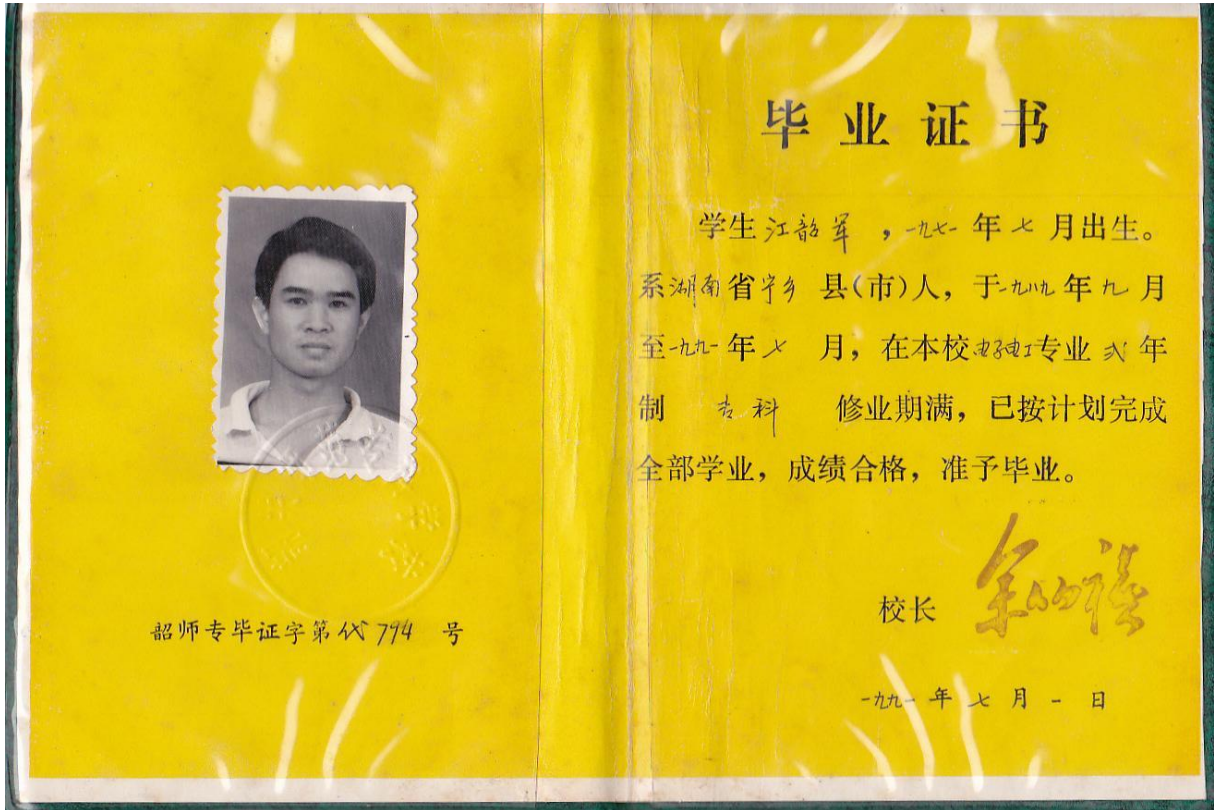 韶师专毕证字第代794号
毕业证书
学生江韶军，一九七一年七月出生。
系湖南省宁乡县（市）人，于一九八九年九月
至一九九一年七月，在本校电子电工专业弍年
制专科修业期满，已按计划完成
全部学业，成绩合格，准予毕业。
校长
一九九一年七月一日